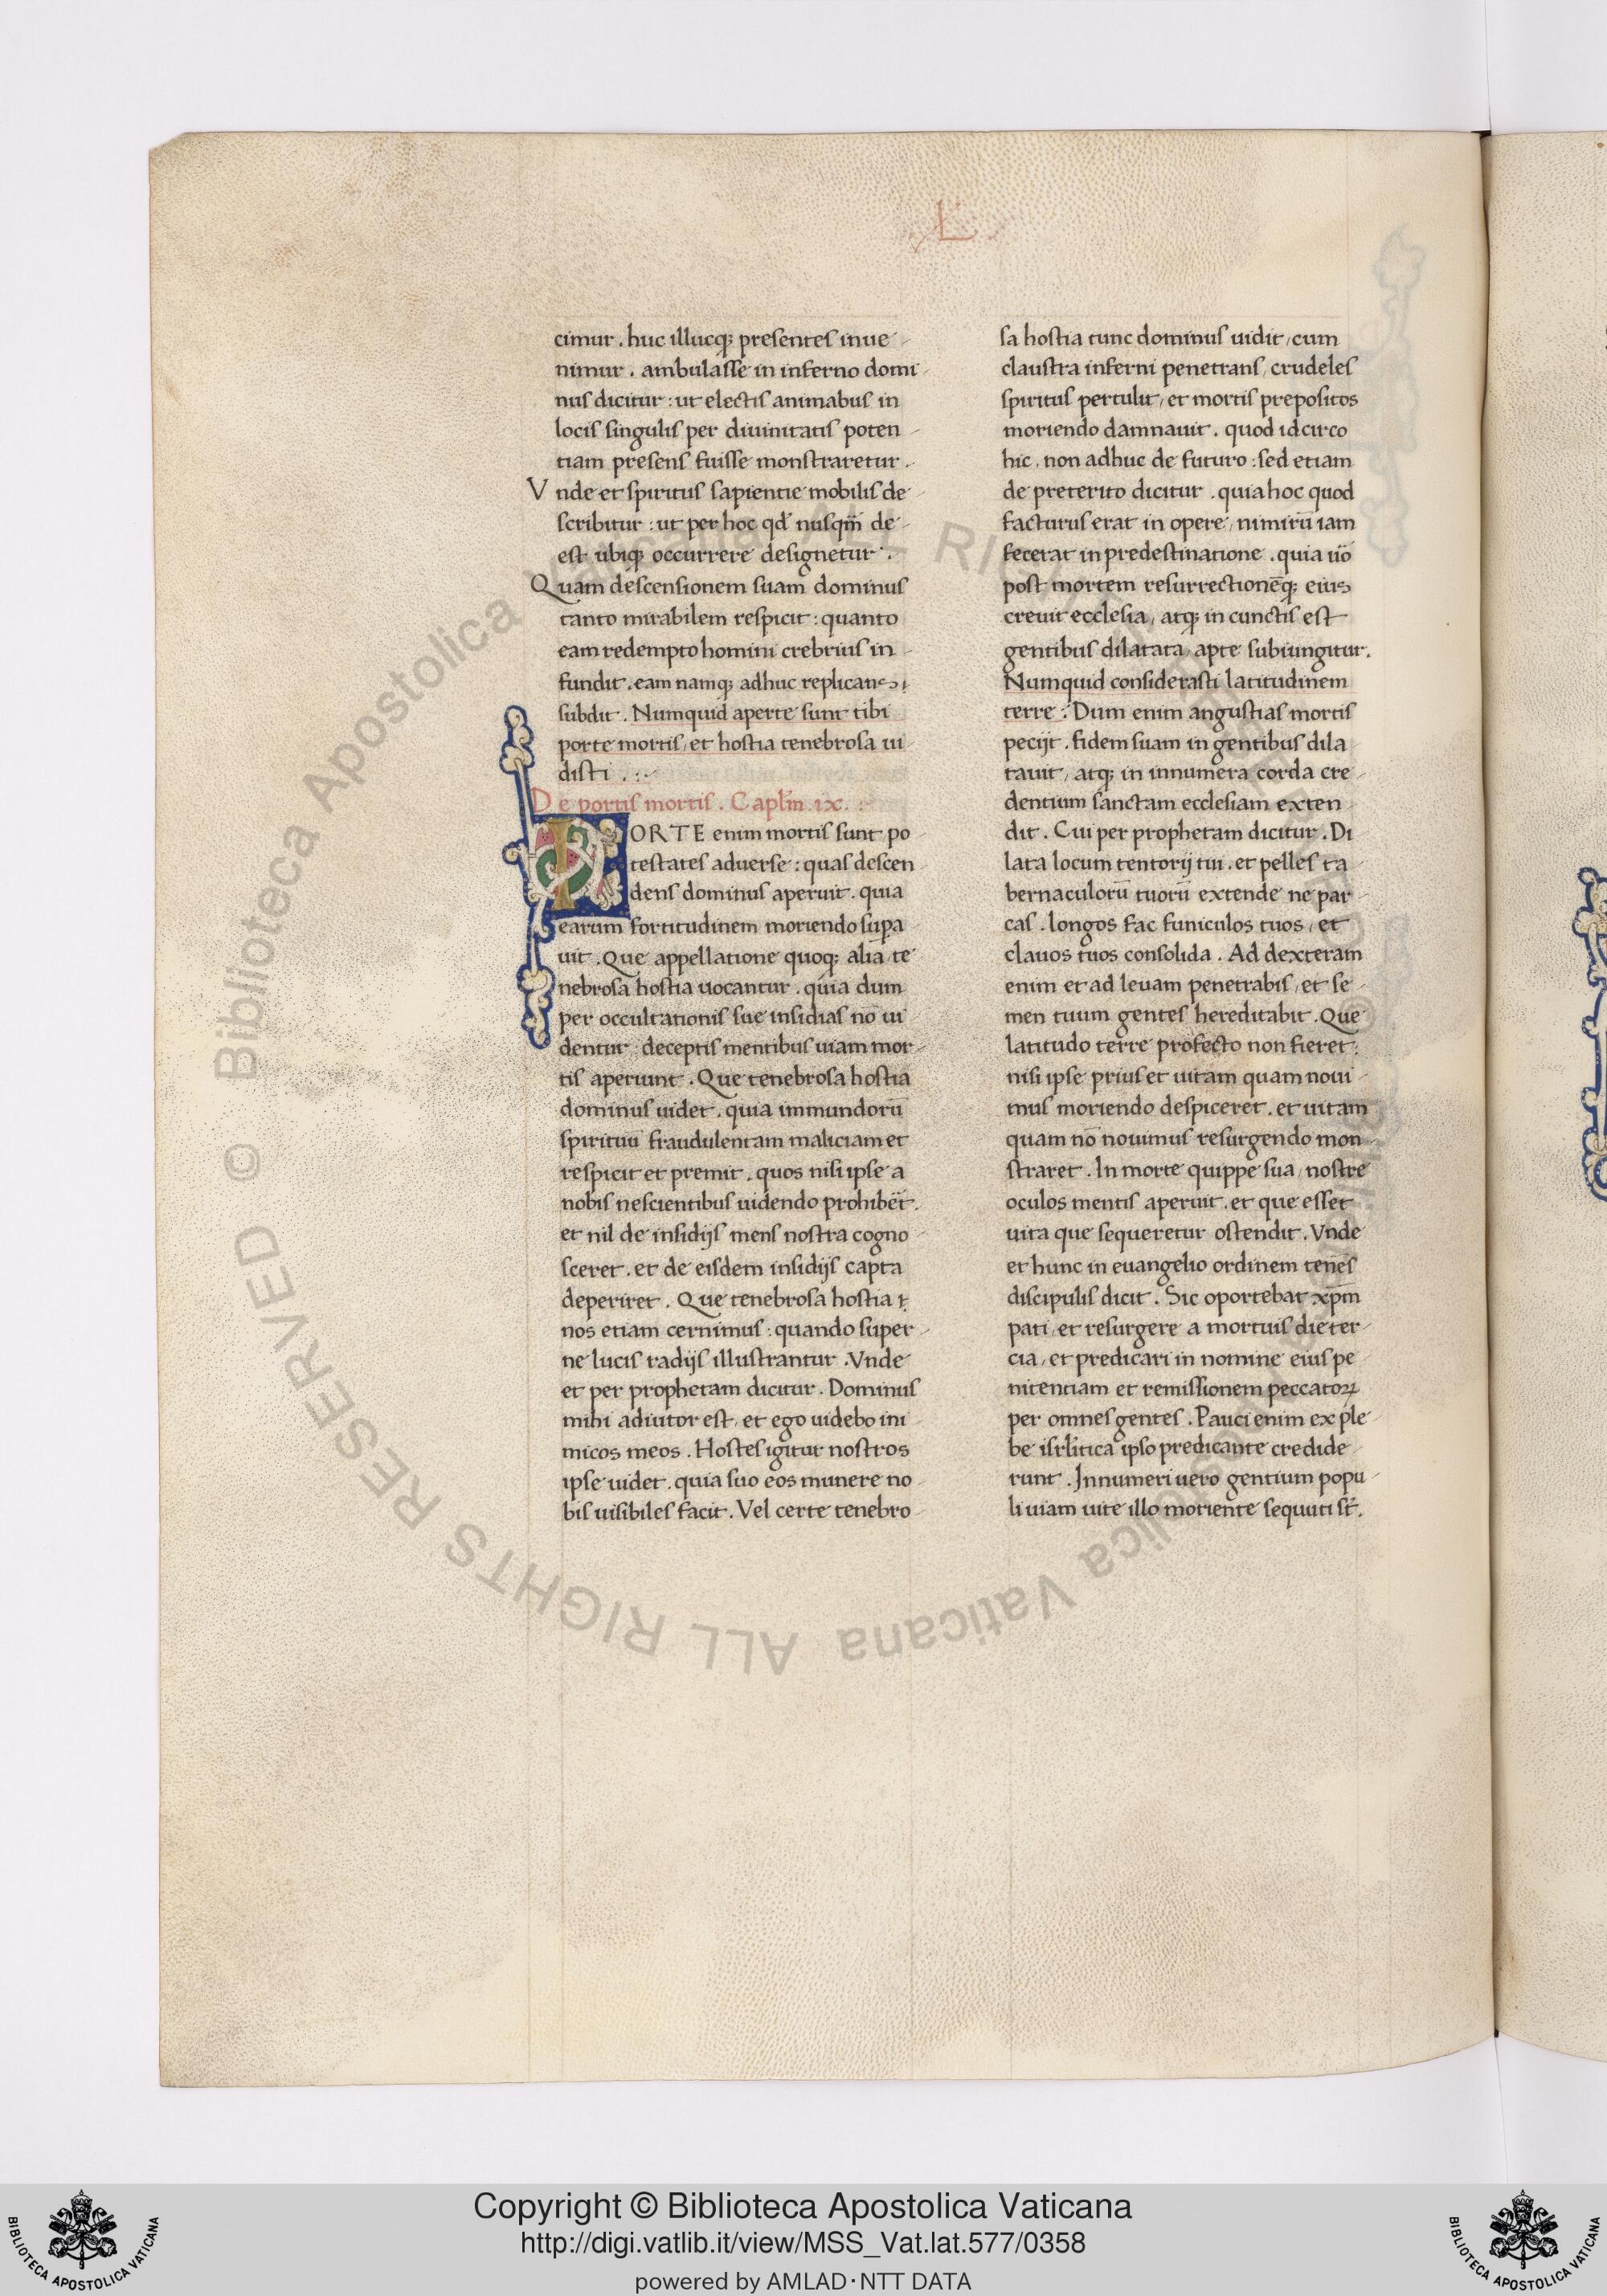 L
cimur . huc illucq; presentes inue-
nimur . ambulasse in inferno domi-
nus dicitur : ut electis animabus in
locis singulis per diuinitatis poten-
tiam presens fuisse monstraretur .
Vnde et spiritus sapientie mobilis de-
scribitur : ut per hoc qđ nusqm̄ de-
est ubiq; occurrere designetur .
Quam descensionem suam dominus
tanto mirabilem respicit : quanto
eam redempto homini crebrius in-
fundit . eam namq; adhuc replicans
subdit . Numquid aperte sunt tibi
porte mortis , et hostia tenebrosa ui-
disti . : .
De portis mortis . Capłm . ix . :
PORTE enim mortis sunt po-
testates aduerse : quas descen-
dens dominus aperuit . quia
earum fortitudinem moriendo suꝑa-
uit . Que appellatione quoq; alia te-
nebrosa hostia uocantur . quia dum
per occultationis sue insidias nō ui-
dentur : deceptis mentibus uiam mor-
tis aperiunt . Que tenebrosa hostia
dominus uidet . quia immundorū
spirituū fraudulentam maliciam et
respicit et premit . quos nisi ipse a
nobis nescientibus uidendo prohibēt .
et nil de insidijs mens nostra cogno-
sceret . et de eisdem insidijs capta
deperiret . Que tenebrosa hostia ⁊
nos etiam cernimus : quando super-
ne lucis radijs illustrantur . Vnde
et per prophetam dicitur . Dominus
mihi adiutor est , et ego uidebo ini-
micos meos . Hostes igitur nostros
ipse uidet . quia suo eos munere no-
bis uisibiles facit . Vel certe tenebro-
sa hostia tunc dominus uidit , cum
claustra inferni penetrans , crudeles
spiritus pertulit , et mortis prepositos
moriendo damnauit . quod idcirco
hic , non adhuc de futuro : sed etiam
de preterito dicitur . quia hoc quod
facturus erat in opere , nimirū iam
fecerat in predestinatione . quia uō
post mortem resurrectionēq; eius
creuit ecclesia , atq; in cunctis est
gentibus dilatata , apte subiungitur .
Numquid considerasti latitudinem
terre : Dum enim angustias mortis
pecijt . fidem suam in gentibus dila-
tauit , atq; in innumera corda cre-
dentium sanctam ecclesiam exten-
dit . Cui per prophetam dicitur . Di-
lata locum tentorij tui . et pelles ta-
bernaculorū tuorū extende ne par-
cas . longos fac funiculos tuos , et
clauos tuos consolida . Ad dexteram
enim et ad leuam penetrabis , et se-
men tuum gentes hereditabit . Que
latitudo terre profecto non fieret :
nisi ipse prius et uitam quam noui-
mus moriendo despiceret . et uitam
quam nō nouimus resurgendo mon-
straret . In morte quippe sua , nostre
oculos mentis aperuit . et que esset
uita que sequeretur ostendit . Vnde
et hunc in euangelio ordinem tenēs
discipulis dicit . Sic oportebat xp̄m
pati , et resurgere a mortuis die ter-
cia , et predicari in nomine eius pe-
nitentiam et remissionem peccatoꝝ
per omnes gentes . Pauci enim ex ple-
be isrłitica ipso predicante credide-
runt . Innumeri uero gentium popu-
li uiam uite illo moriente sequuti st̄ .
© Biblioteca Apostolica Vaticana ALL RIGHTS RESERVED
Copyright © Biblioteca Apostolica Vaticana
http://digi.vatlib.it/view/MSS_Vat.lat.577/0358
powered by AMLAD·NTT DATA
BIBLIOTECA APOSTOLICA VATICANA
BIBLIOTECA APOSTOLICA VATICANA